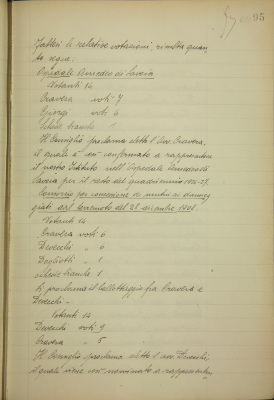 95
Fattesi le relative votazioni, risulta quan
to segue:
Ospedale Amedeo di Savoia
Votanti 14
Cravera voti 7
Giorgi voti 6
Schede bianche 1
Il Consiglio proclama eletto l'Avv. Cravera,
il quale è così confermato a rappresentare
il nostro Istituto nell'Ospedale Amedeo di
Savoia per il resto del quadriennio 1924-27.
Consorzio per concessione di mutui ai danneg
giati dal terremoto del 28 dicembre 1908.
Votanti 14
Cravera voti 6
Devecchi " 6
Dogliotti " 1
schede bianche 1
Si proclama il ballottaggio fra Cravera e
Devecchi -
Votanti 14
Devecchi voti 9
Cravera " 5
Il Consiglio proclama eletto l'avv. Devecchi,
il quale viene così nominato a rappresentare